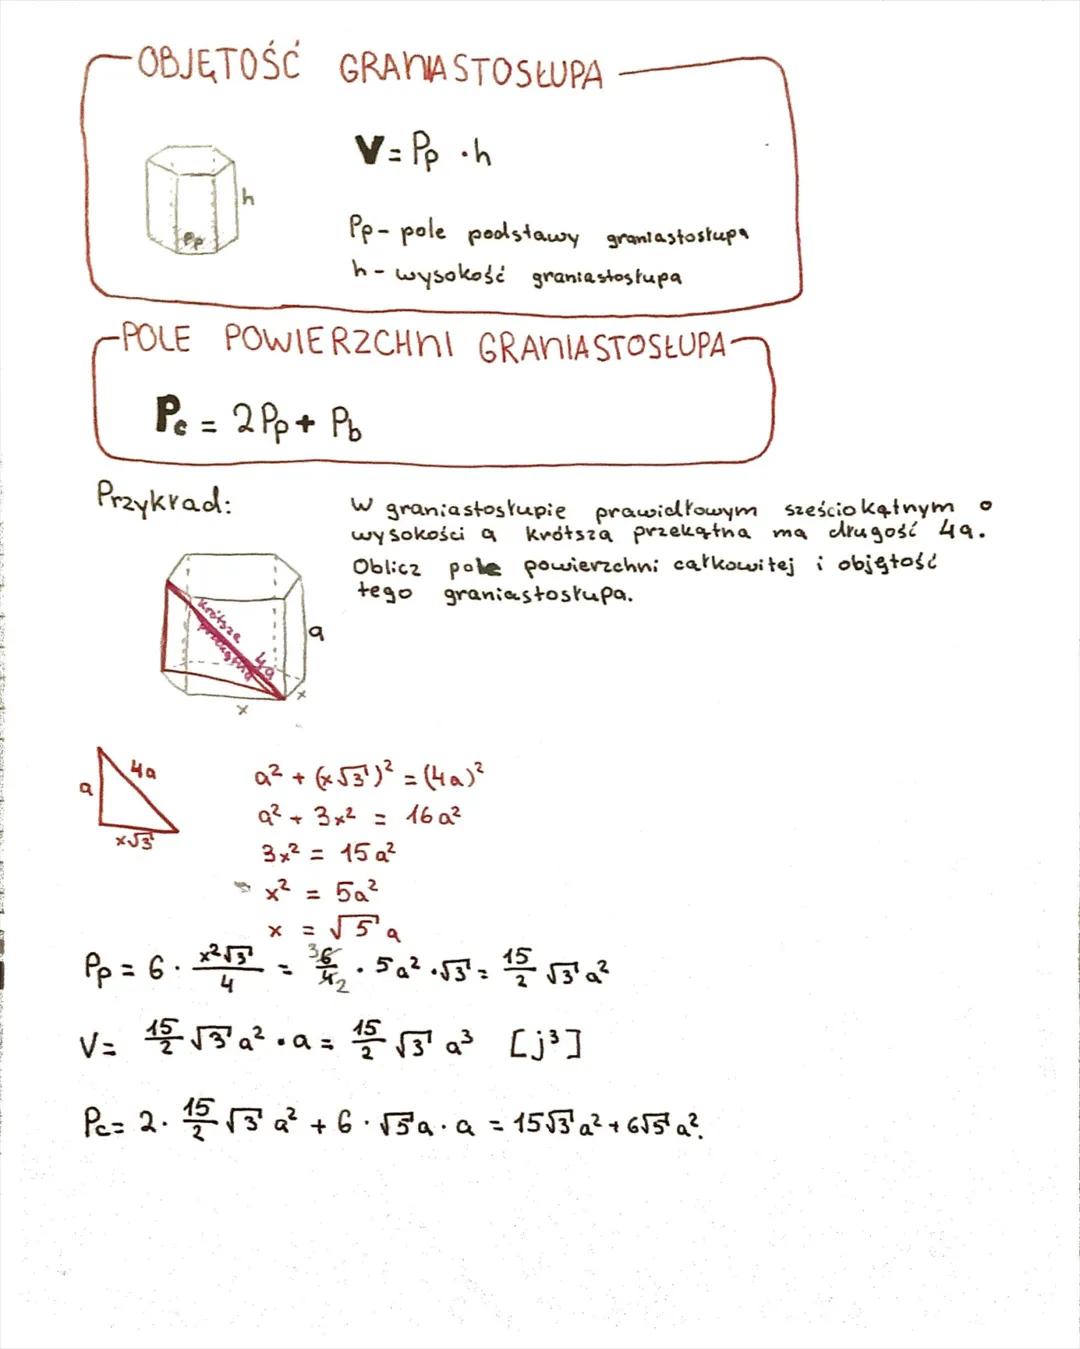 OBJĘTOŚĆ GRANIASTOSŁUPA
V = Pp · h
h
Pp
Pp - pole podstawy graniastosłupa
h - wysokość graniastosłupa
POLE POWIERZCHNI GRANIASTOSŁUPA
Pc = 2Pp + Pb
Przykład:
W graniastosłupie prawidłowym sześciokątnym o
wysokości a krótsza przekątna ma długość 4a.
Oblicz pole powierzchni całkowitej i objętość
tego graniastosłupa.
krótsza
przekątna
4a
a
x
x
a
4a
x√3
a² + (x√3)² = (4a)²
a² + 3x² = 16a²
3x² = 15a²
x² = 5a²
x = √5 a
Pp = 6 · x²√3/4 = 6/4 · 5a² · √3 = 15/2 √3 a²
3
2
V = 15/2 √3 a² · a = 15/2 √3 a³ [j³]
Pc = 2 · 15/2 √3 a² + 6 · √5 a · a = 15√3 a² + 6√5 a².